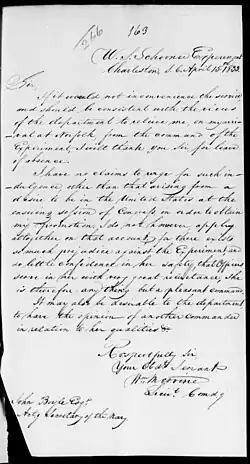 266
163
U. S. Schooner Experiment
Charleston S. C. April 15th 1832.
Sir,
If it would not inconvenience the service
and should be consistent with the views
of the department to relieve me, on my arri-
val at Norfolk from the command of the
Experiment, I will thank you Sir for leave
of absence.
I have no claims to urge for such in-
dulgence other than that arising from a
desire to be in the United States at the
ensuing session of Congress in order to obtain
my promotion, I do not, however, apply
altogether on that account, for there exists
so much prejudice against the Experiment, and
so little confidence in her safety that Officers
serve in her with very great reluctance, she
is therefore any thing but a pleasant command.
It may also be desirable to the department
to have the opinion of another commander
in relation to her qualities &c
Respectfully Sir
Your Obdt Servant
Wm
Lieut. Comdg
John Boyle Esqr.
Actg Secretary of the Navy